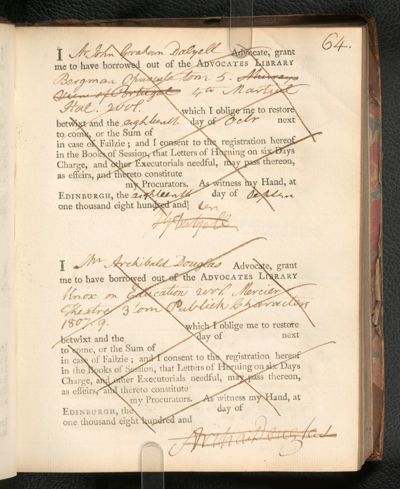 64.
I Mr John Graham Dalyell Advocate, grant
me to have borrowed out of the ADVOCATES LIBRARY
Bergman Opuscula tom 5. Murrays
View of Portugal 4to Martyn
Hal. 2 vol. which I oblige me to restore
betwixt and the eighteenth day of Octr next
to come, or the Sum of
in case of Failzie; and I consent to the registration hereof
in the Books of Session, that Letters of Horning on six Days
Charge, and other Executorials needful, may pass thereon,
as effeirs, and thereto constitute
my Procurators. As witness my Hand, at
EDINBURGH, the eighteenth day of Septem
one thousand eight hundred and ten
Dalyell
I Mr Archibald Douglas Advocate, grant
me to have borrowed out of the ADVOCATES LIBRARY
Knox on Education 2 vol. Mercier
Theatre 3 tom Publick Characters
1807.9. which I oblige me to restore
betwixt and the day of next
to come, or the Sum of
in case of Failzie; and I consent to the registration hereof
in the Books of Session, that Letters of Horning on six Days
Charge, and other Executorials needful, may pass thereon,
as effeirs, and thereto constitute
my Procurators. As witness my Hand, at
EDINBURGH, the day of
one thousand eight hundred and
Archd Douglas